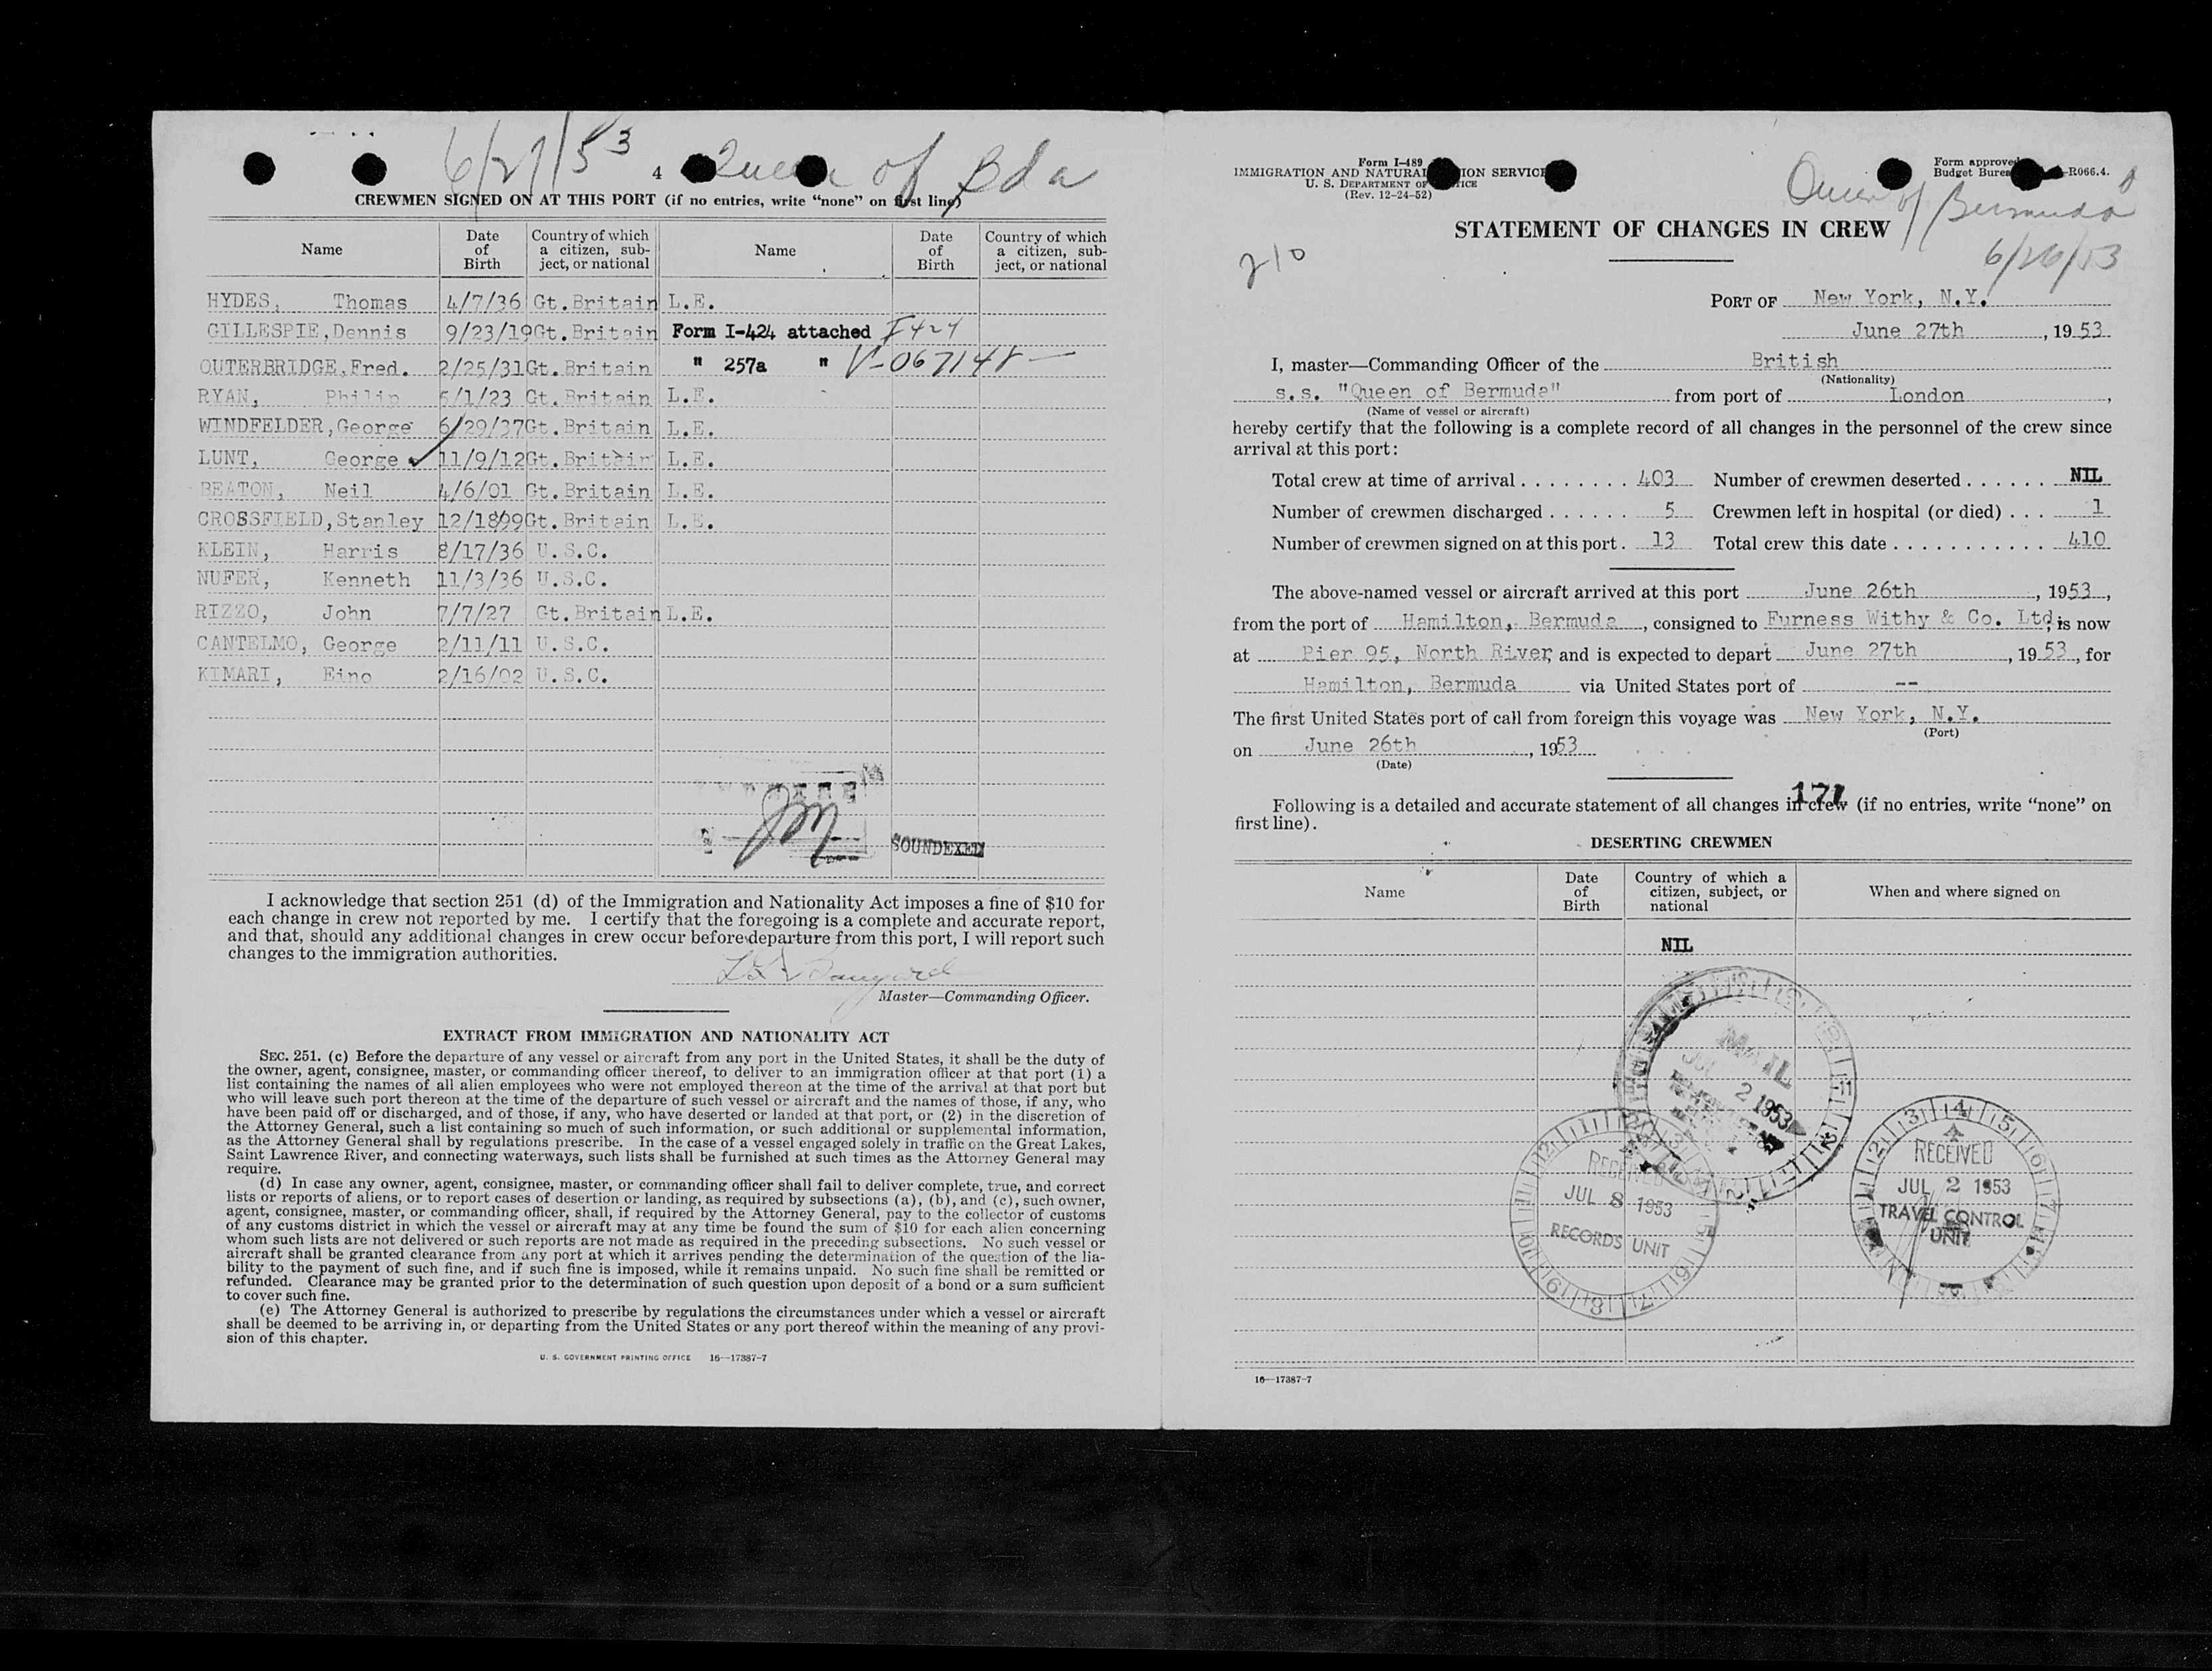 6/27/53 4 Queen of Bda
CREWMEN SIGNED ON AT THIS PORT (if no entries, write “none” on first line)
Name Date of Birth Country of which a citizen, subject, or national Name Date of Birth Country of which a citizen, subject, or national
HYDES, Thomas 4/7/36 Gt.Britain L.E.
GILLESPIE,Dennis 9/23/19 Gt.Britain Form I-424 attached I424
OUTERBRIDGE,Fred. 2/25/31 Gt.Britain " 257a " V-067148 —
RYAN, Philip 5/1/23 Gt.Britain L.E.
WINDFELDER,George 6/29/37 Gt.Britain L.E.
LUNT, George ✓ 11/9/12 Gt.Britain L.E.
BEATON, Neil 4/6/01 Gt.Britain L.E.
CROSSFIELD,Stanley 12/1899 Gt.Britain L.E.
KLEIN, Harris 8/17/36 U.S.C.
NUFER, Kenneth 11/3/36 U.S.C.
RIZZO, John 7/7/27 Gt.Britain L.E.
CANTELMO, George 2/11/11 U.S.C.
KIMARI, Eino 2/16/02 U.S.C.
SOUNDEXED
I acknowledge that section 251 (d) of the Immigration and Nationality Act imposes a fine of $10 for
each change in crew not reported by me. I certify that the foregoing is a complete and accurate report,
and that, should any additional changes in crew occur before departure from this port, I will report such
changes to the immigration authorities.
Master—Commanding Officer.
EXTRACT FROM IMMIGRATION AND NATIONALITY ACT
SEC. 251. (c) Before the departure of any vessel or aircraft from any port in the United States, it shall be the duty of
the owner, agent, consignee, master, or commanding officer thereof, to deliver to an immigration officer at that port (1) a
list containing the names of all alien employees who were not employed thereon at the time of the arrival at that port but
who will leave such port thereon at the time of the departure of such vessel or aircraft and the names of those, if any, who
have been paid off or discharged, and of those, if any, who have deserted or landed at that port, or (2) in the discretion of
the Attorney General, such a list containing so much of such information, or such additional or supplemental information,
as the Attorney General shall by regulations prescribe. In the case of a vessel engaged solely in traffic on the Great Lakes,
Saint Lawrence River, and connecting waterways, such lists shall be furnished at such times as the Attorney General may
require.
(d) In case any owner, agent, consignee, master, or commanding officer shall fail to deliver complete, true, and correct
lists or reports of aliens, or to report cases of desertion or landing, as required by subsections (a), (b), and (c), such owner,
agent, consignee, master, or commanding officer, shall, if required by the Attorney General, pay to the collector of customs
of any customs district in which the vessel or aircraft may at any time be found the sum of $10 for each alien concerning
whom such lists are not delivered or such reports are not made as required in the preceding subsections. No such vessel or
aircraft shall be granted clearance from any port at which it arrives pending the determination of the question of the lia-
bility to the payment of such fine, and if such fine is imposed, while it remains unpaid. No such fine shall be remitted or
refunded. Clearance may be granted prior to the determination of such question upon deposit of a bond or a sum sufficient
to cover such fine.
(e) The Attorney General is authorized to prescribe by regulations the circumstances under which a vessel or aircraft
shall be deemed to be arriving in, or departing from the United States or any port thereof within the meaning of any provi-
sion of this chapter.
U. S. GOVERNMENT PRINTING OFFICE 16—17387-7
Form I-489
IMMIGRATION AND NATURAL ION SERVICE
U. S. DEPARTMENT OF TICE
(Rev. 12-24-52)
Form approved
Budget Bureau -R066.4.
Queen of Bermuda
6/26/53
210
STATEMENT OF CHANGES IN CREW
PORT OF New York, N.Y.
June 27th, 1953
I, master—Commanding Officer of the British
(Nationality)
s.s. "Queen of Bermuda" from port of London,
(Name of vessel or aircraft)
hereby certify that the following is a complete record of all changes in the personnel of the crew since
arrival at this port:
Total crew at time of arrival 403 Number of crewmen deserted NIL
Number of crewmen discharged 5 Crewmen left in hospital (or died) 1
Number of crewmen signed on at this port. 13 Total crew this date 410
The above-named vessel or aircraft arrived at this port June 26th, 1953,
from the port of Hamilton, Bermuda, consigned to Furness Withy & Co. Ltd, is now
at Pier 95, North River, and is expected to depart June 27th, 1953, for
Hamilton, Bermuda via United States port of --
The first United States port of call from foreign this voyage was New York, N.Y.
(Port)
on June 26th, 1953
(Date)
171
Following is a detailed and accurate statement of all changes in crew (if no entries, write “none” on
first line).
DESERTING CREWMEN
Name Date of Birth Country of which a citizen, subject, or national When and where signed on
NIL
MAIL
JUL 2 1953
RECEIVED
JUL 8 1953
RECORDS UNIT
RECEIVED
JUL 2 1953
TRAVEL CONTROL
UNIT
16—17387-7